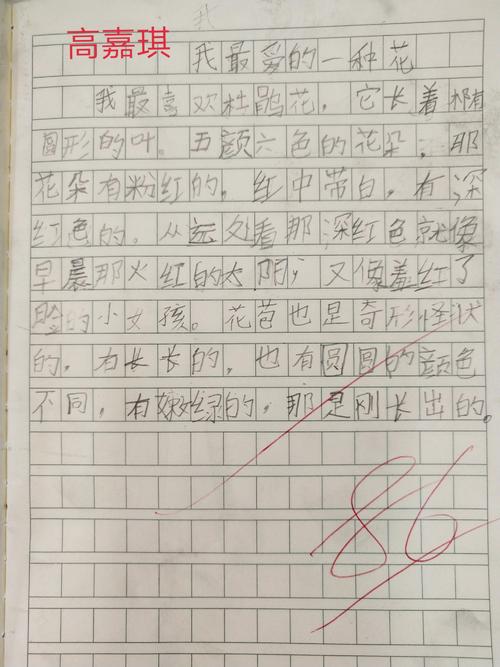 我
高嘉琪
我最爱的一种花
我最喜欢杜鹃花，它长着椭有
圆形的叶。五颜六色的花朵，那
花朵有粉红的，红中带白，有深
红色的。从远处看那深红色就像
早晨那火红的太阳，又像羞红了
脸的小女孩。花苞也是奇形怪状
的，有长长的，也有圆圆的颜色
不同，有嫩绿的，那是刚长出的。
86